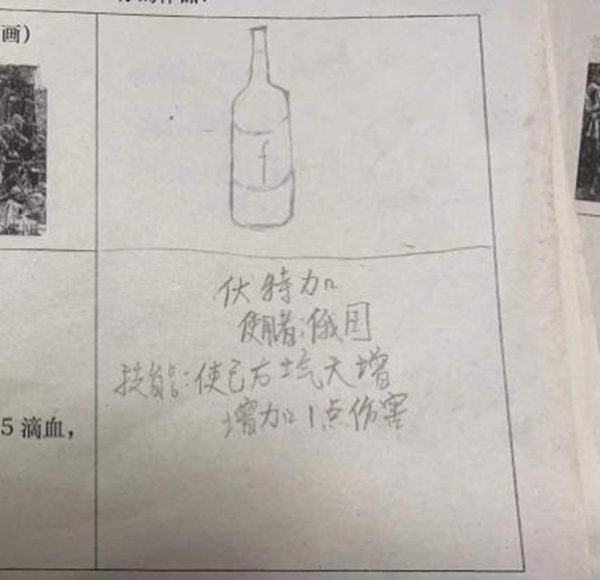 画）
f
伏特加
使用者：俄国
技能：使己方士气大增
增加1点伤害
5滴血，